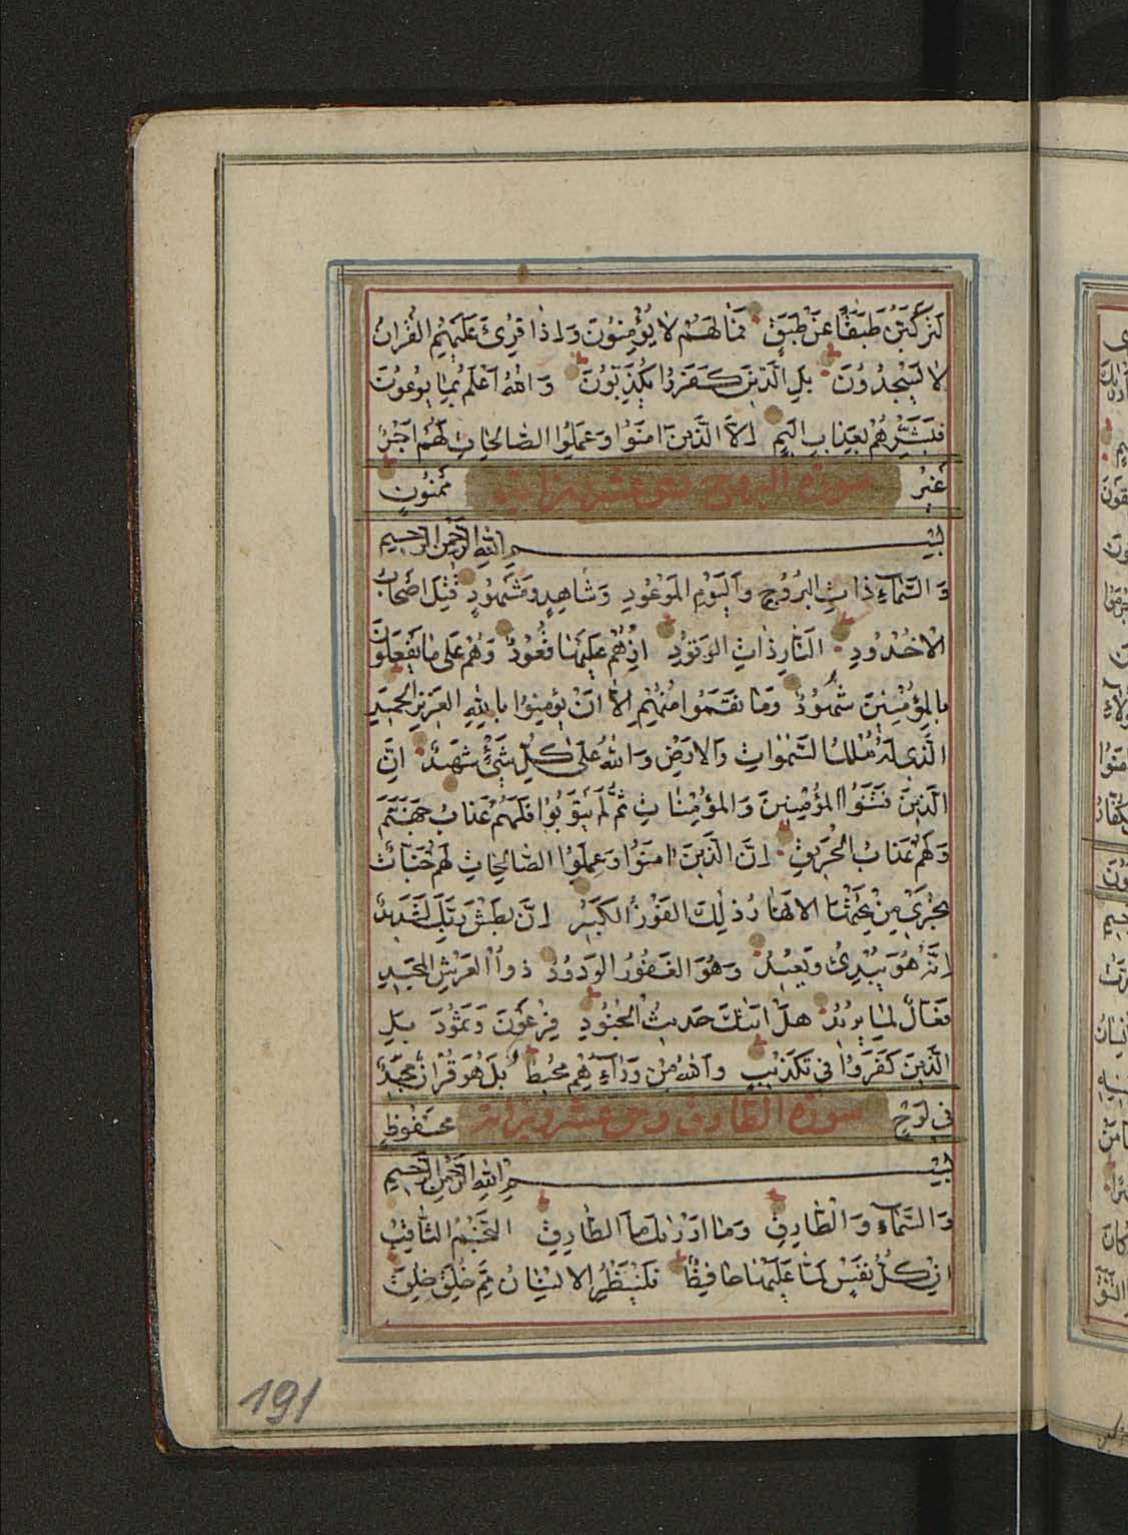 لَتَرْكَبُنَّ طَبَقًا عَنْ طَبَقٍ فَمَا لَهُمْ لَا يُؤْمِنُونَ وَاِذَا قُرِئَ عَلَيْهِمُ الْقُرْاٰنُ
لَا يَسْجُدُونَ بَلِ الَّذِينَ كَفَرُوا يُكَذِّبُونَ وَاللّٰهُ اَعْلَمُ بِمَا يُوعُونَ
فَبَشِّرْهُمْ بِعَذَابٍ اَلِيمٍ اِلَّا الَّذِينَ اٰمَنُوا وَعَمِلُوا الصَّالِحَاتِ لَهُمْ اَجْرٌ
غَيْرُ مَمْنُونٍ
سورة البروج
بِسْمِ اللّٰهِ الرَّحْمٰنِ الرَّحِيمِ
وَالسَّمَآءِ ذَاتِ الْبُرُوجِ وَالْيَوْمِ الْمَوْعُودِ وَشَاهِدٍ وَمَشْهُودٍ قُتِلَ اَصْحَابُ
الْاُخْدُودِ اَلنَّارِ ذَاتِ الْوَقُودِ اِذْ هُمْ عَلَيْهَا قُعُودٌ وَهُمْ عَلٰى مَا يَفْعَلُونَ
بِالْمُؤْمِنِينَ شُهُودٌ وَمَا نَقَمُوا مِنْهُمْ اِلَّا اَنْ يُؤْمِنُوا بِاللّٰهِ الْعَزِيزِ الْحَمِيدِ
الَّذِى لَهُ مُلْكُ السَّمٰوَاتِ وَالْاَرْضِ وَاللّٰهُ عَلٰى كُلِّ شَىْءٍ شَهِيدٌ اِنَّ
الَّذِينَ فَتَنُوا الْمُؤْمِنِينَ وَالْمُؤْمِنَاتِ ثُمَّ لَمْ يَتُوبُوا فَلَهُمْ عَذَابُ جَهَنَّمَ
وَلَهُمْ عَذَابُ الْحَرِيقِ اِنَّ الَّذِينَ اٰمَنُوا وَعَمِلُوا الصَّالِحَاتِ لَهُمْ جَنَّاتٌ
تَجْرِى مِنْ تَحْتِهَا الْاَنْهَارُ ذٰلِكَ الْفَوْزُ الْكَبِيرُ اِنَّ بَطْشَ رَبِّكَ لَشَدِيدٌ
اِنَّهُ هُوَ يُبْدِئُ وَيُعِيدُ وَهُوَ الْغَفُورُ الْوَدُودُ ذُو الْعَرْشِ الْمَجِيدِ
فَعَّالٌ لِمَا يُرِيدُ هَلْ اَتٰيكَ حَدِيثُ الْجُنُودِ فِرْعَوْنَ وَثَمُودَ بَلِ
الَّذِينَ كَفَرُوا فِى تَكْذِيبٍ وَاللّٰهُ مِنْ وَرَآئِهِمْ مُحِيطٌ بَلْ هُوَ قُرْاٰنٌ مَجِيدٌ
فِى لَوْحٍ مَحْفُوظٍ
سورة الطارق
بِسْمِ اللّٰهِ الرَّحْمٰنِ الرَّحِيمِ
وَالسَّمَآءِ وَالطَّارِقِ وَمَا اَدْرٰيكَ مَا الطَّارِقُ اَلنَّجْمُ الثَّاقِبُ
اِنْ كُلُّ نَفْسٍ لَمَّا عَلَيْهَا حَافِظٌ فَلْيَنْظُرِ الْاِنْسَانُ مِمَّ خُلِقَ خُلِقَ
191